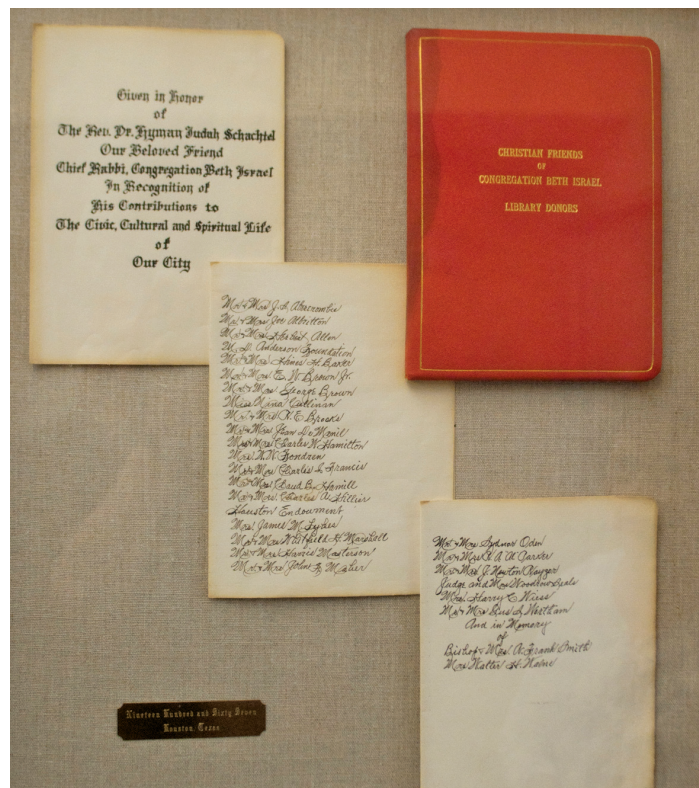 Given in Honor
of
The Rev. Dr. Hyman Judah Schachtel
Our Beloved Friend
Chief Rabbi, Congregation Beth Israel
In Recognition of
His Contributions to
The Civic, Cultural and Spiritual Life
of
Our City
CHRISTIAN FRIENDS
OF
CONGREGATION BETH ISRAEL
LIBRARY DONORS
Mr & Mrs J. S. Abercrombie
Mr & Mrs Joe Albritton
Mr & Mrs Herbert Allen
M. D. Anderson Foundation
Mr & Mrs Hines H. Baker
Mr & Mrs E. W. Brown Jr.
Mr & Mrs George Brown
Miss Nina Cullinan
Mr & Mrs R. E. Brooks
Mr & Mrs Jean De Menil
Mr & Mrs Charles W. Hamilton
Mrs W. W. Fondren
Mr & Mrs Charles I. Francis
Mr & Mrs Claud B. Hamill
Mr & Mrs. Charles A.
Houston Endowment
Mrs James M.
Mr & Mrs Westfield H. Marshall
Mr & Mrs Harris Masterson
Mr & Mrs John
Mr & Mrs Sydnor Oden
Mr & Mrs R. A. Parker
Mr & Mrs J. Newton Rayzor
Judge and Mrs Woodrow Seals
Mrs Harry C. Wiess
Mr & Mrs Gus S. Wortham
And in Memory
of
Bishop & Mrs A. Frank Smith
Mrs Walter H.
Nineteen Hundred and Sixty Seven
Houston, Texas